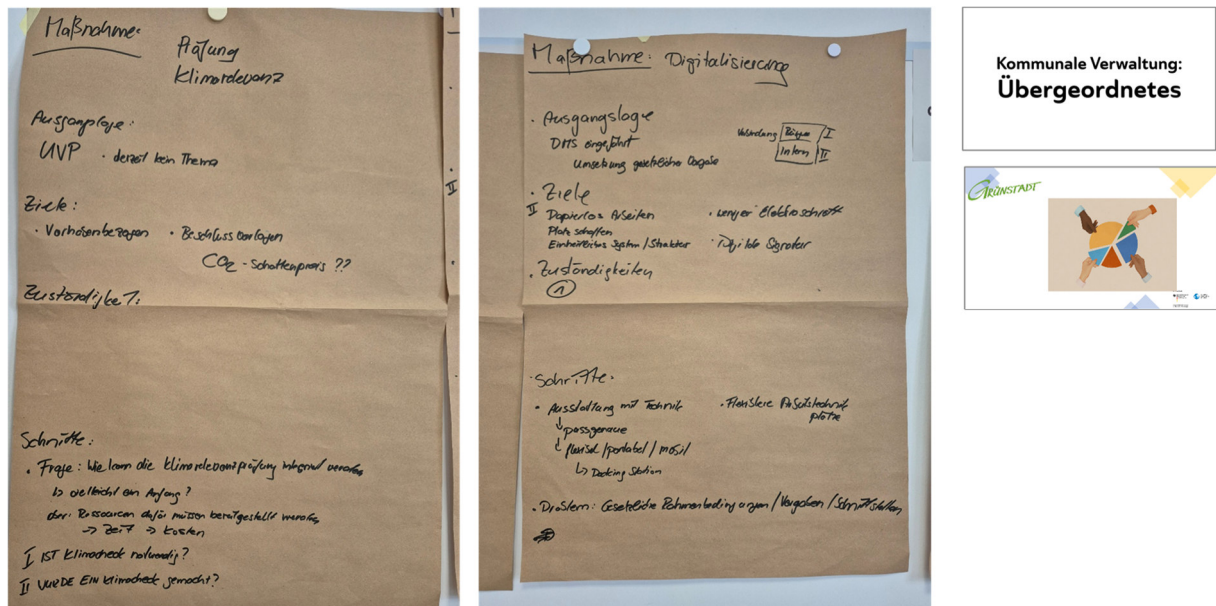 Maßnahme:
Prüfung
Klimarelevanz
Ausgangslage:
UVP · derzeit kein Thema
Ziele:
· Vorhabenbezogen · Beschlussvorlagen
CO2 - Schattenpreis ??
Zuständigkeit:
Schritte:
· Frage: Wie kann die Klimarelevanzprüfung integriert werden
↳ vielleicht ein Anfang?
aber: Ressourcen dafür müssen bereitgestellt werden
→ Zeit → Kosten
I IST Klimacheck notwendig?
II WURDE EIN Klimacheck gemacht?
II
Maßnahme: Digitalisierung
· Ausgangslage
DMS eingeführt
Umsetzung gesetzlicher Vorgabe
Verbindung Bürger I
Intern II
· Ziele
II
Papierlos Arbeiten
Platz schaffen
Einheitliches System / Struktur
· weniger Elektroschrott
· Digitale Signatur
· Zuständigkeiten
1
· Schritte:
· Ausstattung mit Technik
↓ passgenaue
↓ flexibel / portabel / mobil
↳ Docking Station
· Flexiblere Arbeitstechnik
plätze
· Problem: Gesetzliche Rahmenbedingungen / Vorgaben / Schnittstellen
Kommunale Verwaltung:
Übergeordnetes
GRÜNSTADT